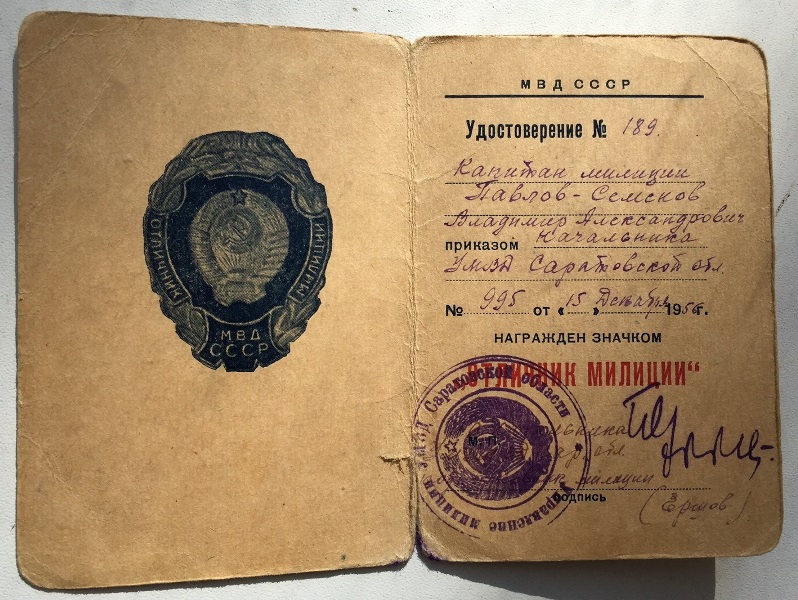 ОТЛИЧНИК МИЛИЦИИ
МВД
СССР
МВД СССР
Удостоверение № 189.
Капитан милиции
Павлов-Семенов
Владимир Александрович
приказом Начальника
УМВД Саратовской обл.
№ 995 от «15» Декабря 1956г.
НАГРАЖДЕН ЗНАЧКОМ
„ОТЛИЧНИК МИЛИЦИИ“
Управление милиции УМВД Саратовской области
М. П.
милиции
подпись
(Ершов)